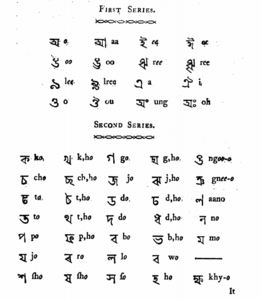 First Series.
অ o আ aa ই ee ঈ ee
উ oo ঊ oo ঋ ree ৠ ree
ঌ lree ৡ lree এ a ঐ i
ও o ঔ ou অং ung অঃ oh
Second Series.
ক ko, খ k,ho গ go. ঘ g,ho. ঙ ngoo-o
চ cho ছ ch,ho জ jo ঝ j,ho ঞ gnee-o
ট to. ঠ t,ho ড do. ঢ d,ho. ণ aano
ত to থ t,ho দ do ধ d,ho ন no
প po ফ p,ho ব bo ভ b,ho ম mo
য jo র ro ল lo ব wo
শ sho ষ sho স so হ ho ক্ষ khy-o
It